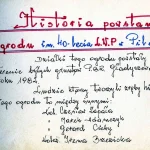 Historia powstan
ogrodu im. 40-lecia L.W.P w Pił
Działki tego ogrodu powstały
terenie byłych gruntów PGR Gładyszewo
roku 198
Ludzie którzy tworzyli zręby
tego ogrodu to między innymi:
- kol Czesław Zając
- Marek Adamczyk
- Gerard Cichy
- kol. Irena Brzezicka